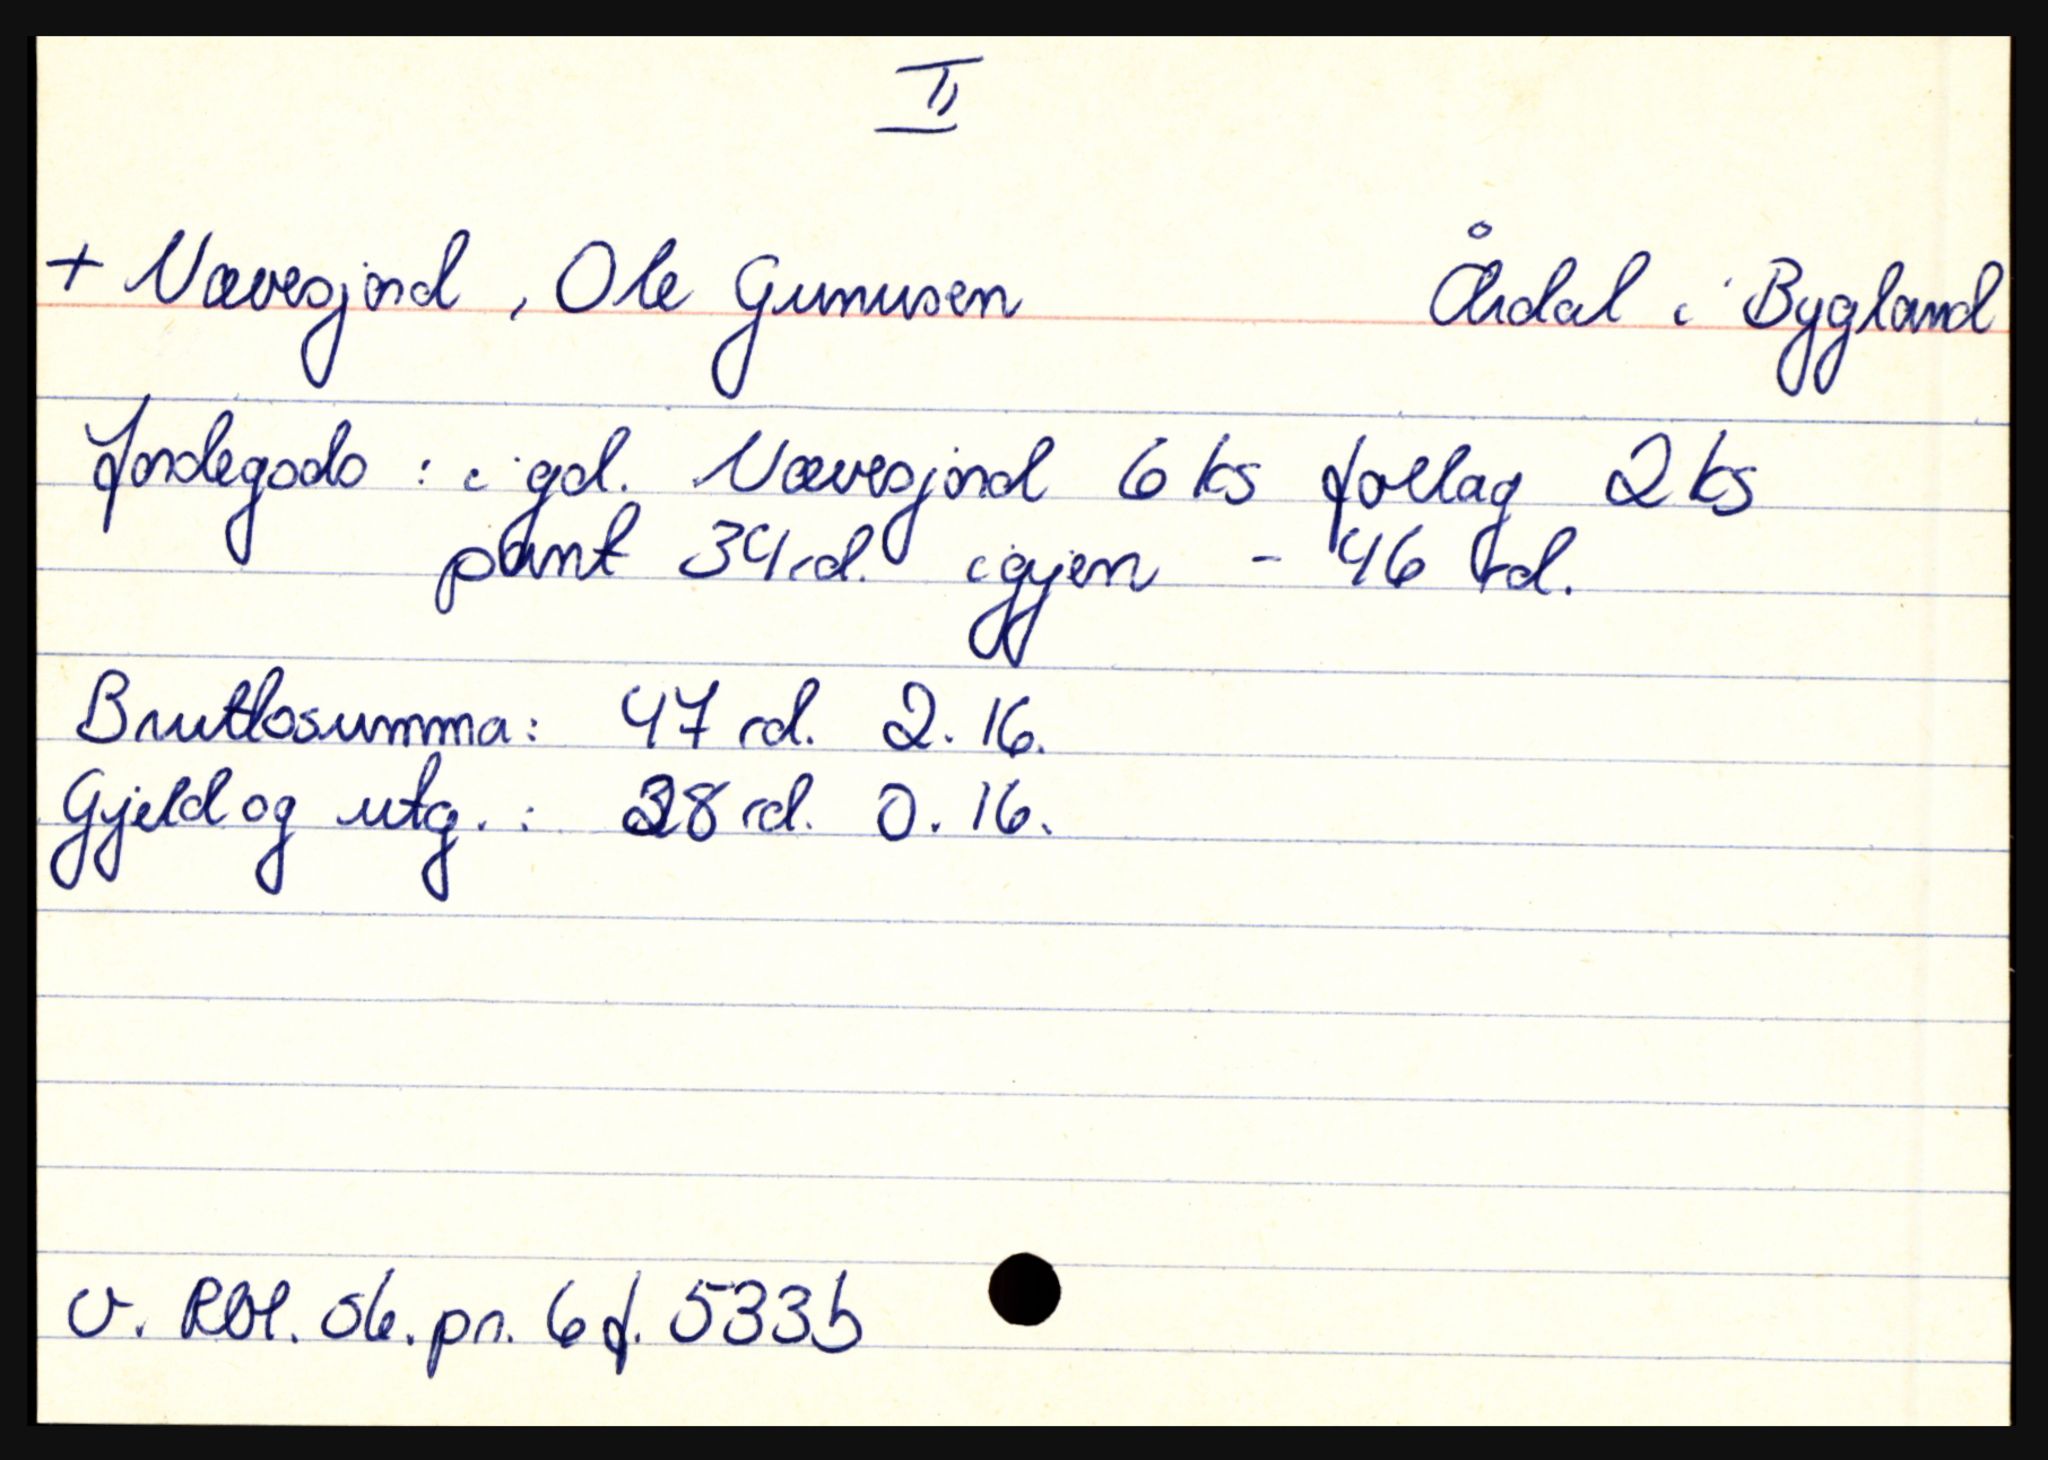 II
+ Nævesjord, Ole Gunnusen Årdal i Bygland
Jordegods : i gd. Nævesjord 6 ks follag 2 ks
pant 34 rd. igjen - 46 rd.
Bruttosumma: 47 rd. 2. 16.
Gjeld og utg. : 38 rd. 0. 16.
V. Rbl. sk. pr. 6 f. 533b